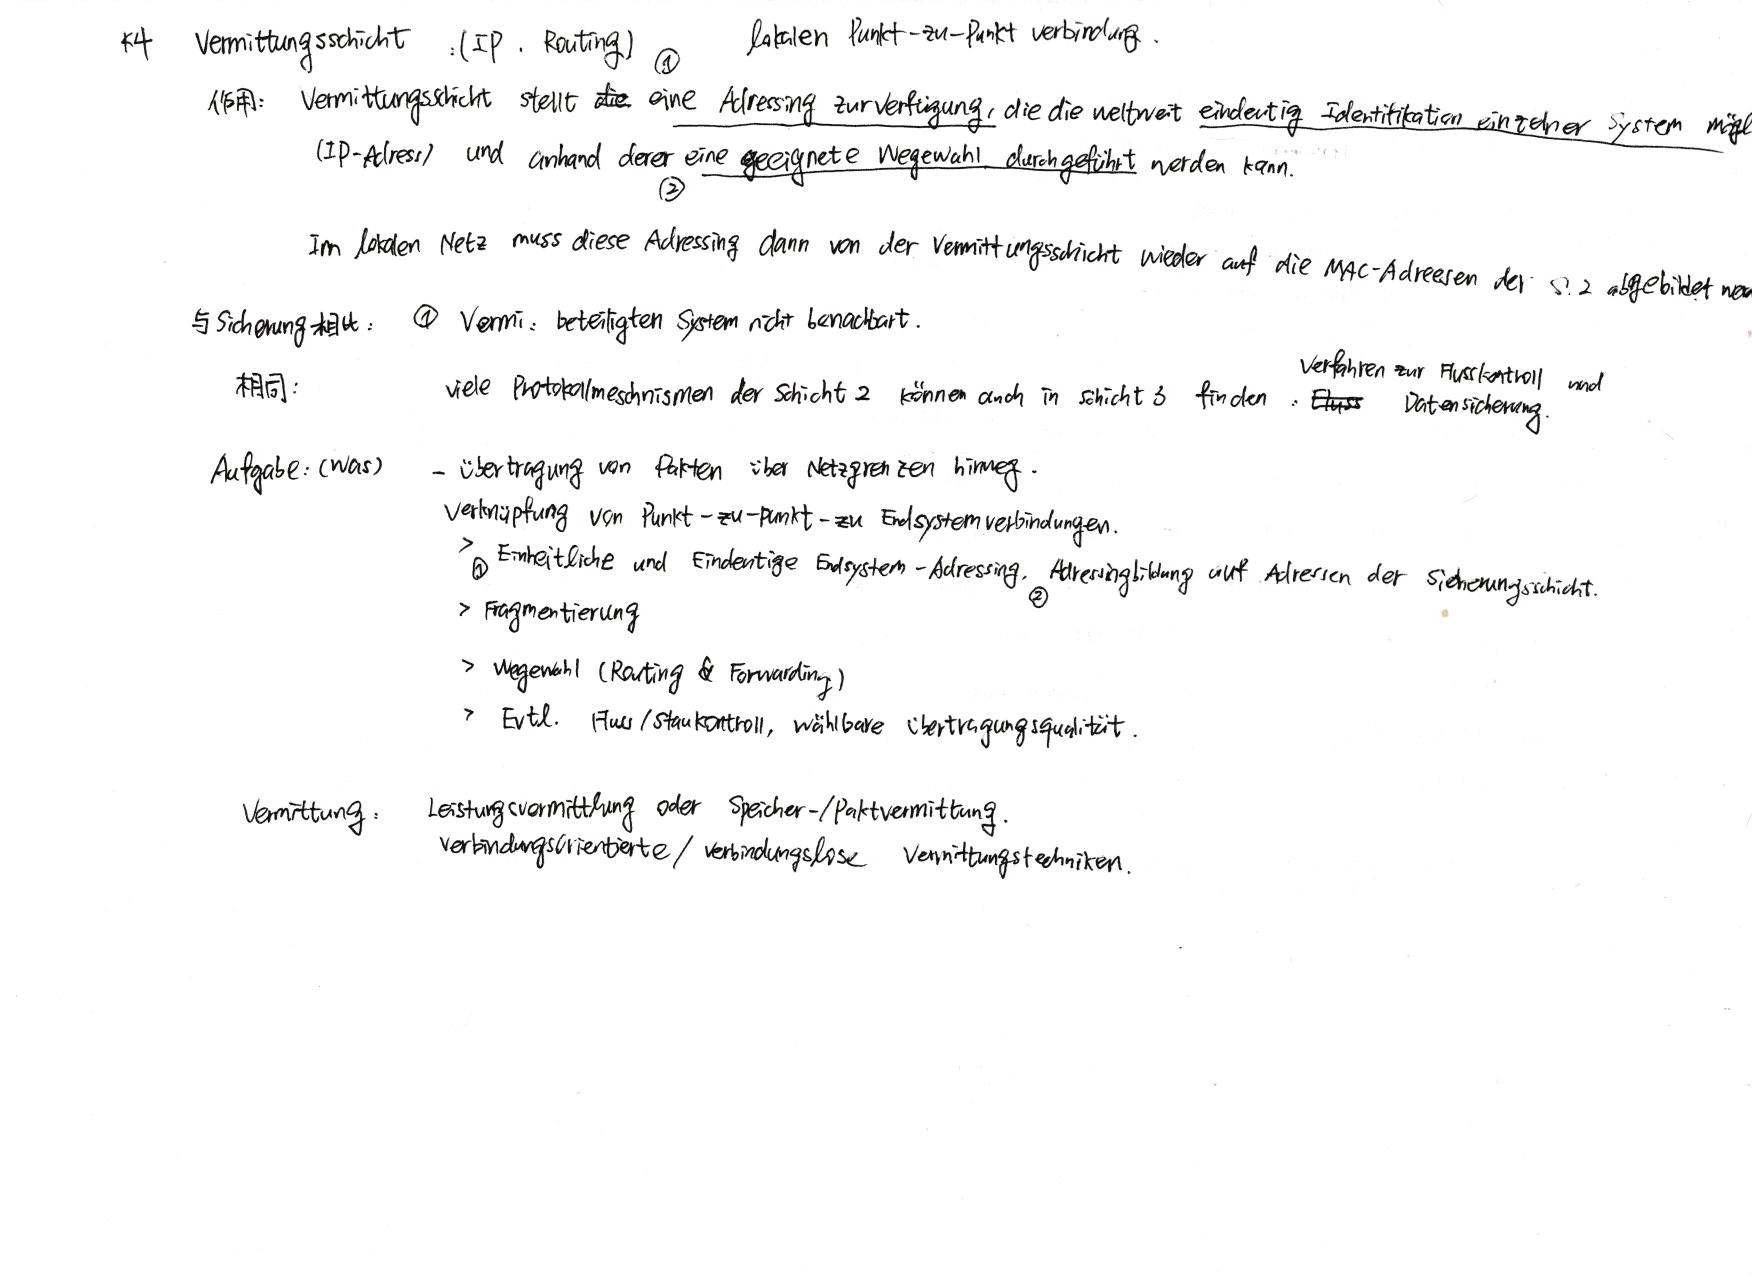 K4 Vermittungsschicht :(IP . Routing) lokalen Punkt-zu-Punkt verbindung.
①
作用: Vermittungsschicht stellt die eine Adressing zur verfügung, die die weltweit eindeutig Identifikation einzelner System mögl
(IP-Adress) und anhand derer eine geeignete Wegewahl durchgeführt werden kann.
②
Im lokalen Netz muss diese Adressing dann von der Vermittungsschicht wieder auf die MAC-Adreesen der S.2 abgebildet wer
与Sicherung相比: ① Vermi: beteiligten System nicht benachbart.
相同: viele Protokollmeschnismen der Schicht 2 können auch in schicht 3 finden . Fluss Verfahren zur Flusskontroll und
Datensicherung.
Aufgabe: (was) - übertragung von Pakten über Netzgrenzen hinweg.
Verknüpfung von Punkt-zu-Punkt-zu Endsystemverbindungen.
> ① Einheitliche und Eindeutige Endsystem-Adressing. ② Adressingbildung auf Adressen der Sicherungsschicht.
> Fragmentierung
> Wegewahl (Routing & Forwarding)
> Evtl. Fluss/Staukontroll, wählbare übertragungsqualität.
Vermittung: Leistungsvermittlung oder Speicher-/Paktvermittung.
verbindungsorientierte/verbindungslose Vermittungstechniken.